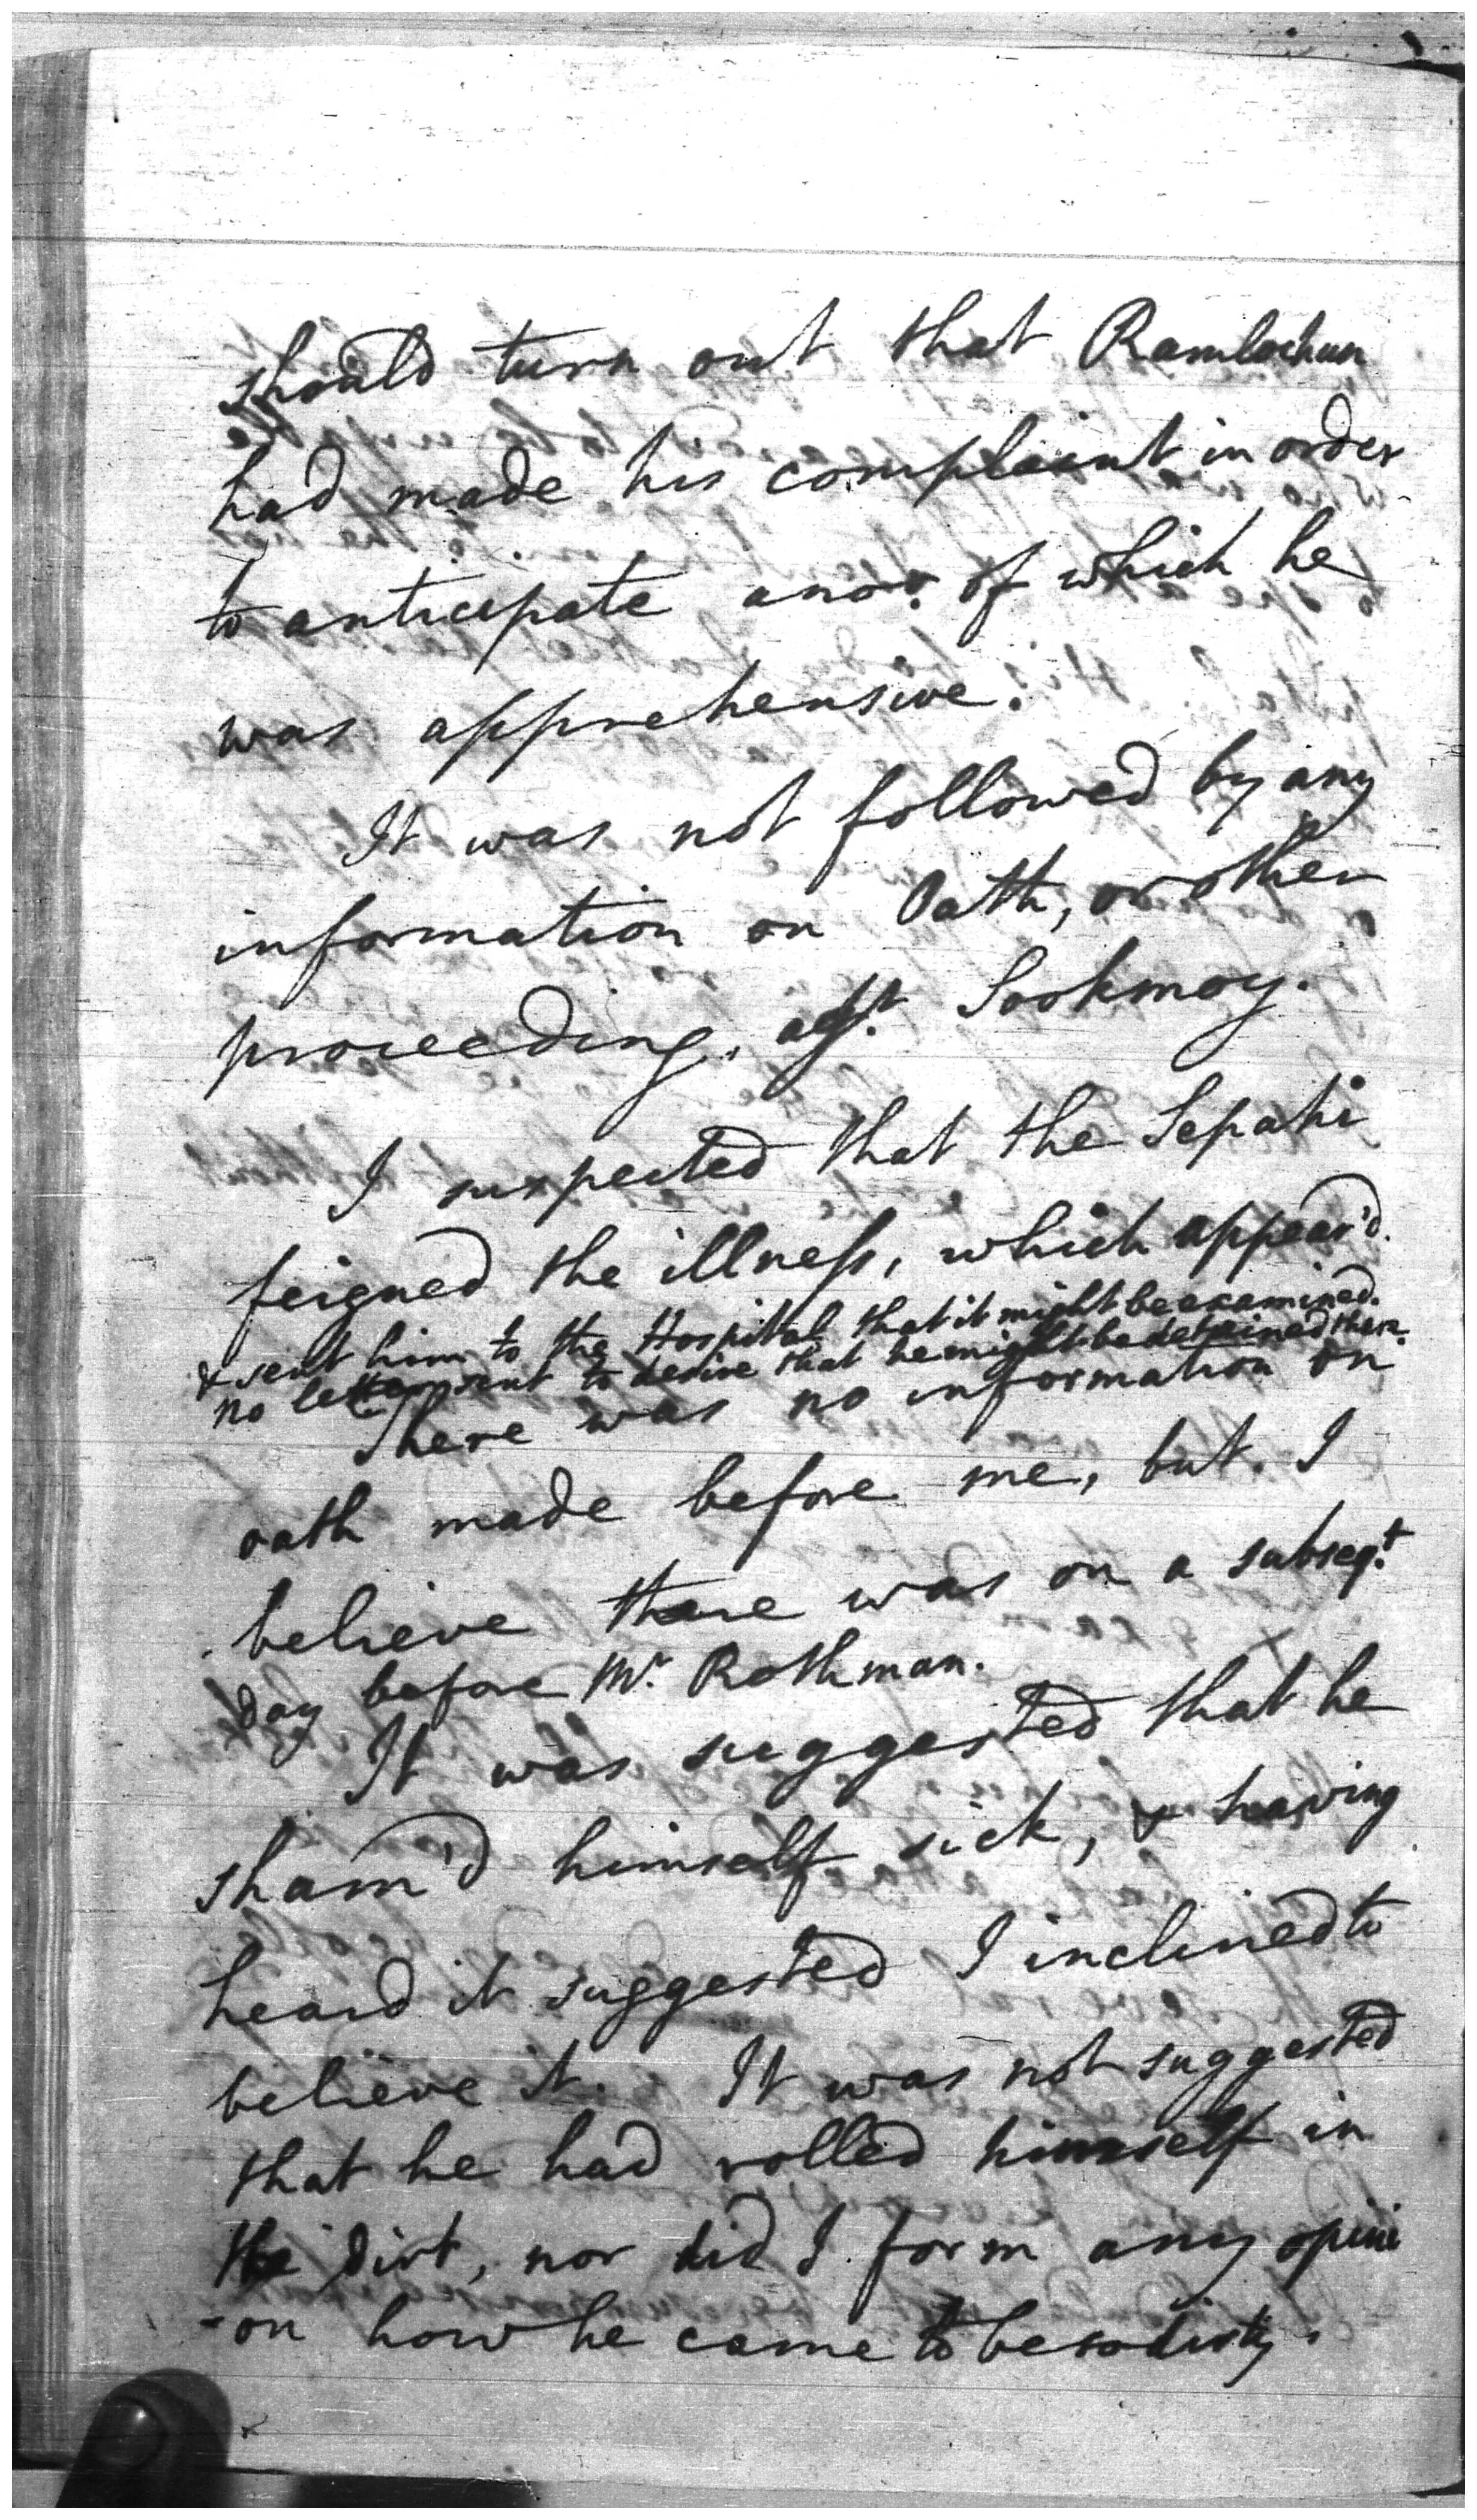 should turn out that Ramlochun
had made his complaint in order
to anticipate anor. of which he
was apprehensive.
It was not followed by any
information on Oath, or other
proceeding, agst. Sookmoy.
I suspected that the Sepahi
feigned the illness, which appear'd.
& sent him to the Hospital that it might be examined.
no letter sent to desire that he might be detained there.
There was no information on
oath made before me, but I
believe there was on a subseqt.
day before Mr. Rothman.
It was suggested that he
sham'd himself sick, & having
heard it suggested I inclined to
believe it. It was not suggested
that he had rolled himself in
the dirt, nor did I form any opini
-on how he came to be so dirty.